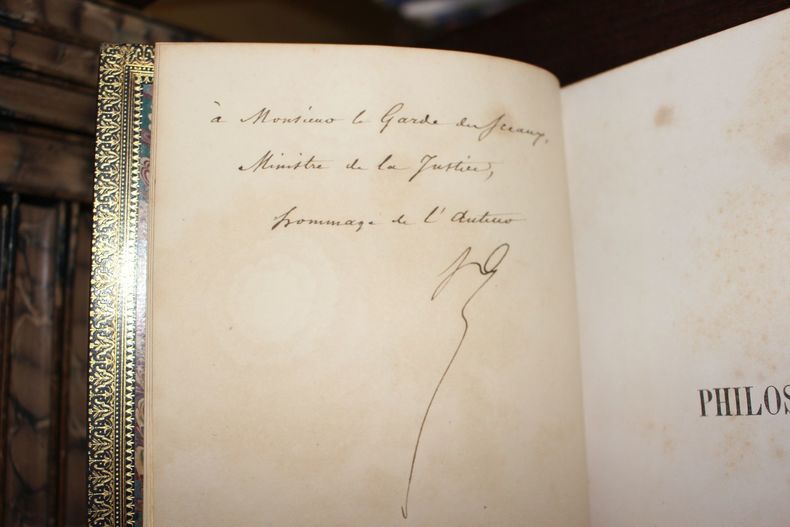 à Monsieur le Garde des Sceaux,
Ministre de la Justice,
hommage de l'auteur
PHILOS